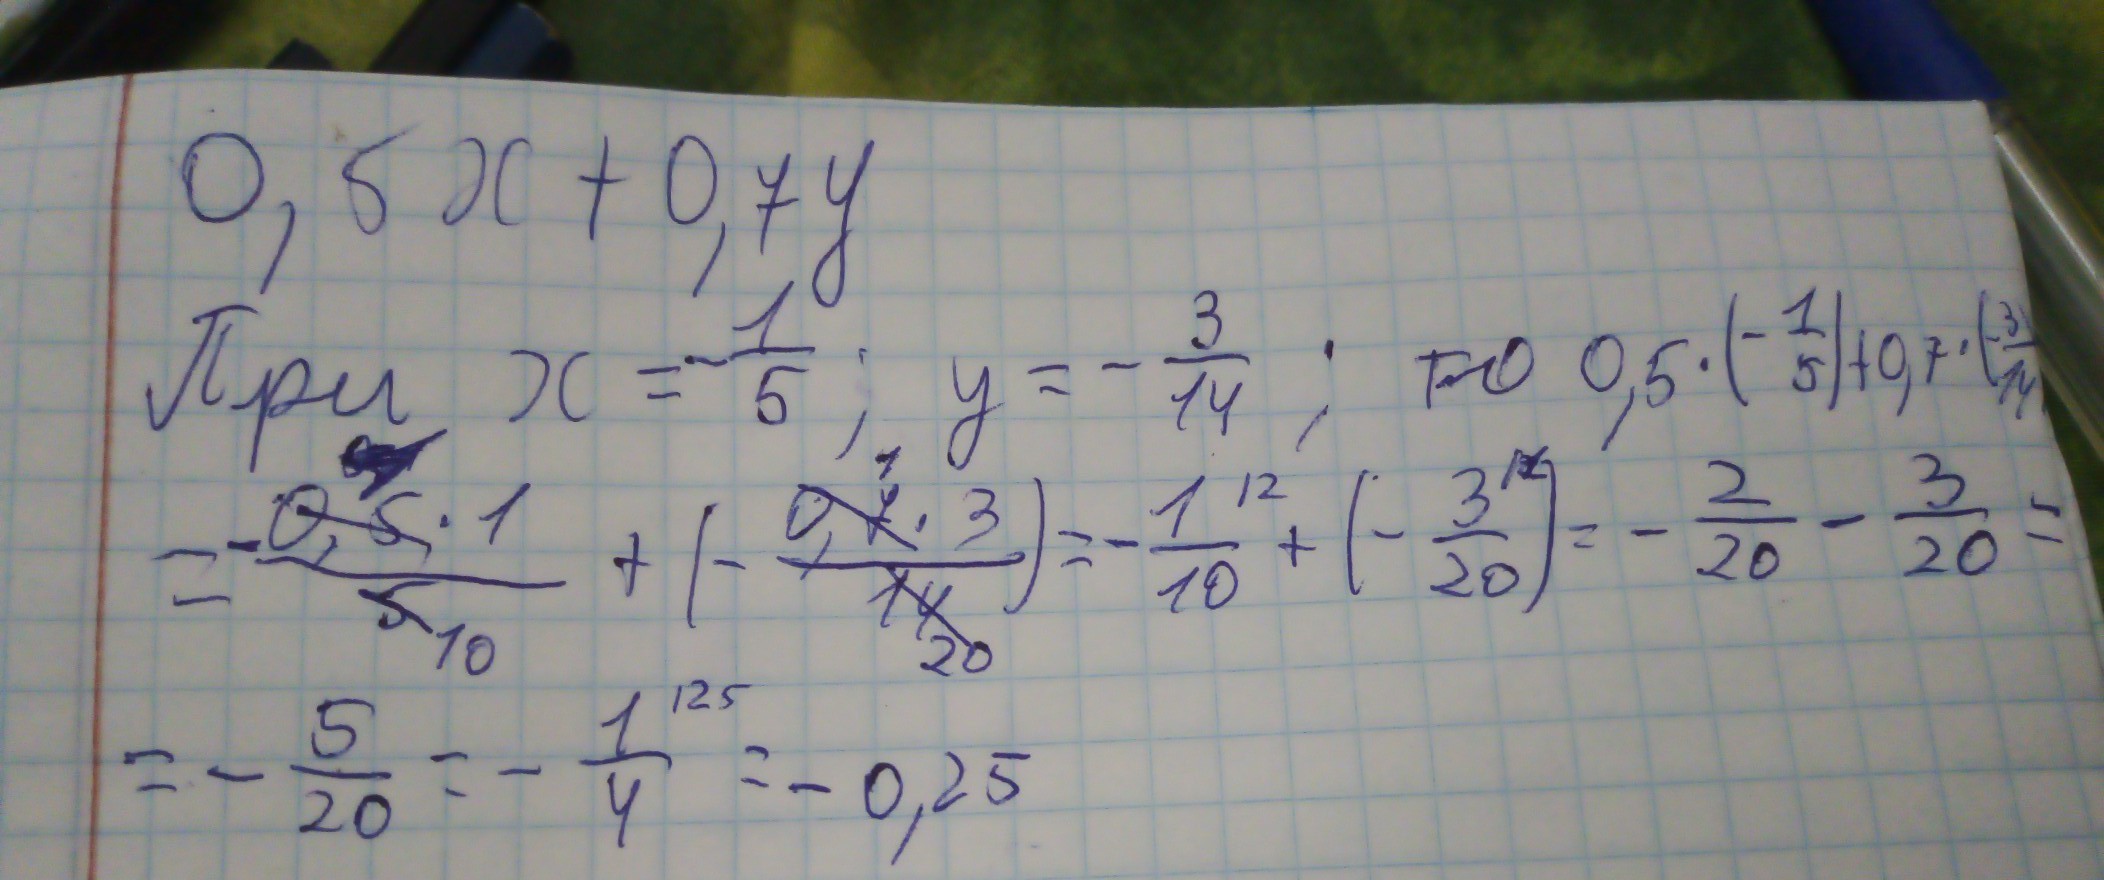 0,5x+0,7y
При x=-1/5; y=-3/14; то 0,5·(-1/5)+0,7·(-3/14
=-0,5·1/5 10+(-0,7 1·3/14 20)=-1/10 12+(-3/20)=-2/20-3/20=
=-5/20=-1/4 125=-0,25